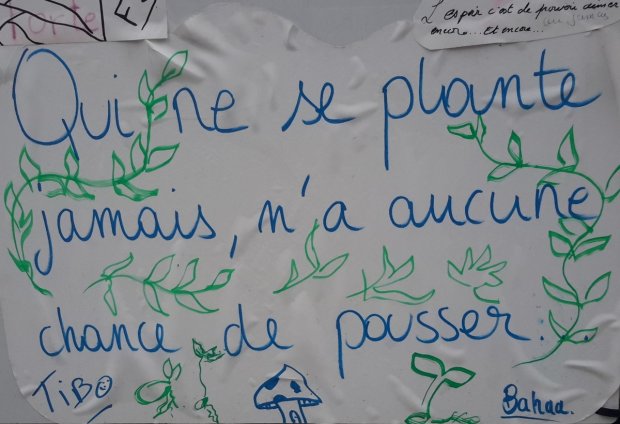 L'espoir c'est de pouvoir aimer
encore... et encore...
Qui ne se plante
jamais, n'a aucune
chance de pousser.
TiBO
Bahaa.